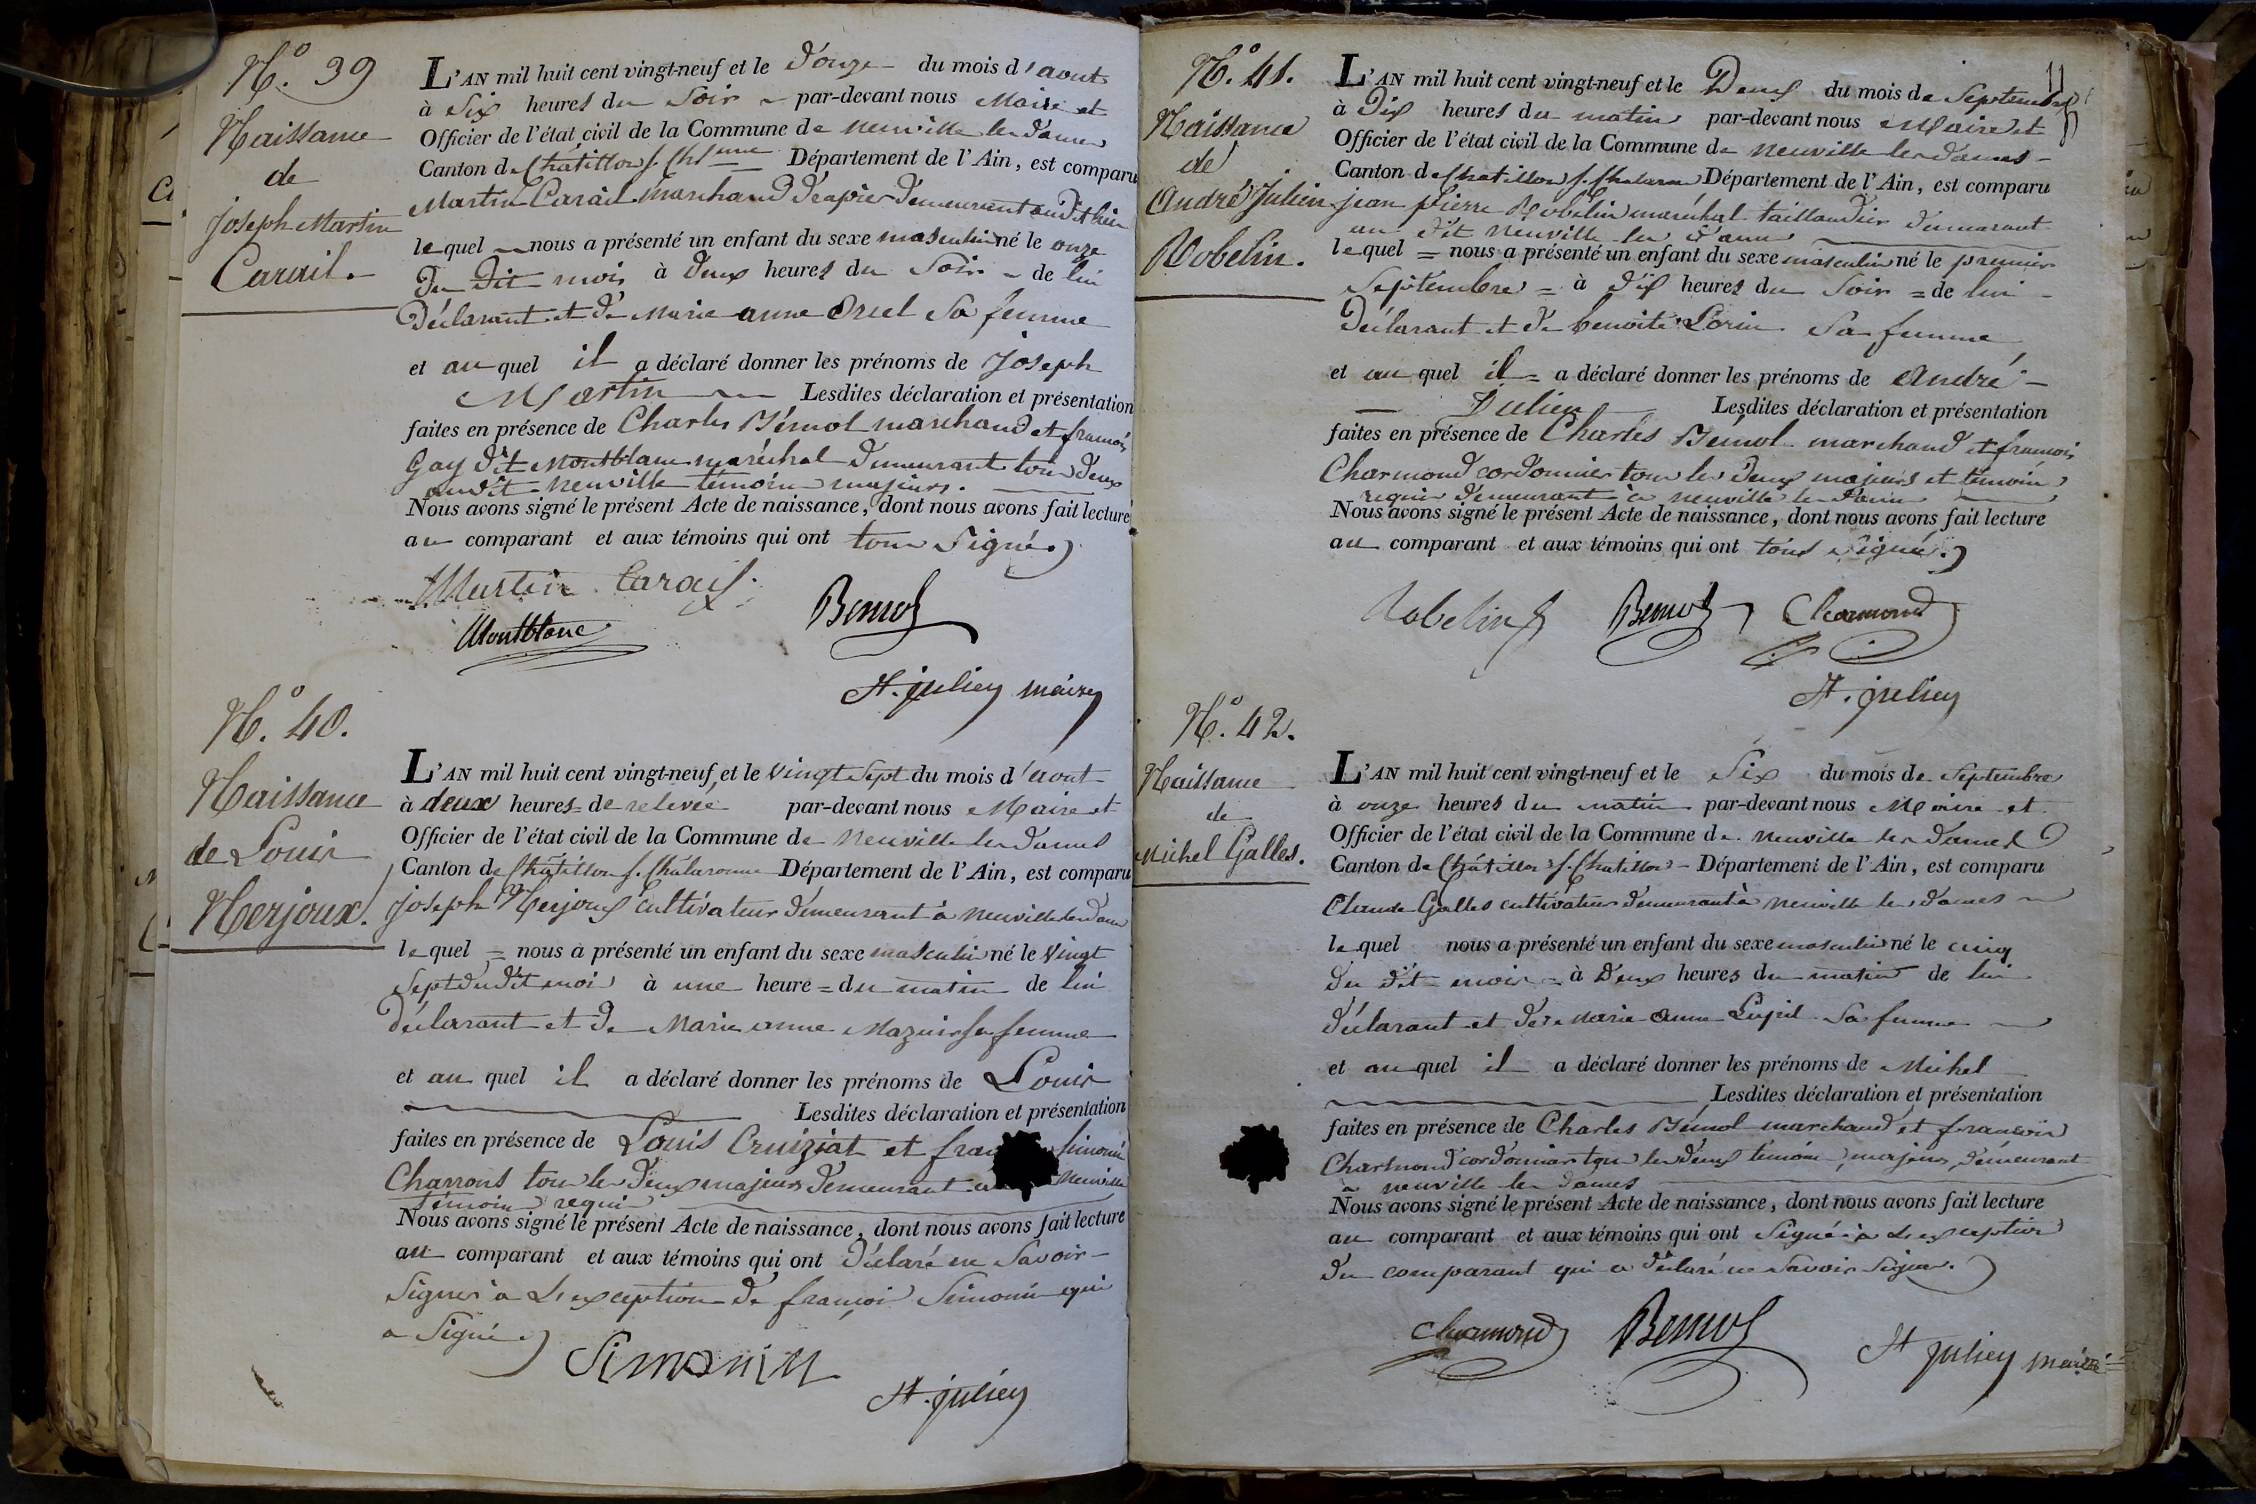 N.º 39
Naissance
de
Joseph Martin
Carail.
L'AN mil huit cent vingt-neuf et le d'ouze du mois d'aout
à Six heures du Soir par-devant nous Maire et
Officier de l'état civil de la Commune de neuville les dames
Canton de Châtillon s. Ch.ronne Département de l'Ain, est comparu
Martin Carail Marchand drapier demeurant audit lieu
lequel nous a présenté un enfant du sexe masculin né le onze
du dit mois à deux heures du Soir de lui
déclarant et de Marie anne Sa femme
et au quel il a déclaré donner les prénoms de Joseph
Martin Lesdites déclaration et présentation
faites en présence de Charles Bémol marchand et francois
Gay dit Montblanc maréchal demeurant tous deux
audit neuville témoins majeurs.
Nous avons signé le présent Acte de naissance, dont nous avons fait lecture
au comparant et aux témoins qui ont tous Signé.
Martin Carail
Bemol
Montblanc
St. julien maire
N.º 40.
Naissance
de Louis
Merjoux.
L'AN mil huit cent vingt-neuf et le vingt Sept du mois d'aout
à deux heures de relevée par-devant nous Maire et
Officier de l'état civil de la Commune de Neuville les dames
Canton de Châtillon s. Chalaronne Département de l'Ain, est comparu
joseph Merjoux cultivateur demeurant à neuville les dames
lequel = nous a présenté un enfant du sexe masculin né le vingt
Sept du dit mois à une heure = du matin de lui
déclarant et de Marie anne Mazuir sa femme
et au quel il a déclaré donner les prénoms de Louis
Lesdites déclaration et présentation
faites en présence de Louis Cruiziat et Simonin
Charrons tous les deux majeurs demeurant Neuville
témoins requis
Nous avons signé le présent Acte de naissance, dont nous avons fait lecture
au comparant et aux témoins qui ont déclaré ne Savoir
Signer à L'exception de françois Simonin qui
a Signé
Simonin
St. julien
11
N.º 41.
Naissance
de
André Julien
Robelin.
L'AN mil huit cent vingt-neuf et le Deux du mois de Septembre
à Dix heures du matin par-devant nous Maire et
Officier de l'état civil de la Commune de neuville les dames
Canton de Chatillon s. Chalaronne Département de l'Ain, est comparu
jean pierre Robelin maréchal taillandier demeurant
au dit neuville les dames
lequel = nous a présenté un enfant du sexe masculin né le premier
Septembre = à dix heures du Soir = de lui
déclarant et de benoite Lorin Sa femme
et au quel il = a déclaré donner les prénoms de André
Julien Lesdites déclaration et présentation
faites en présence de Charles Bémol marchand et francois
Charmond cordonnier tous les deux majeurs et témoins
requis demeurant à neuville les dames
Nous avons signé le présent Acte de naissance, dont nous avons fait lecture
au comparant et aux témoins qui ont tous Signé.
Robelin
Bemol
Charmond
St. julien
N.º 42.
Naissance
de
Michel Galles.
L'AN mil huit cent vingt-neuf et le Six du mois de Septembre
à onze heures du matin par-devant nous Maire et
Officier de l'état civil de la Commune de neuville les dames
Canton de Châtillon s. Chatillon Département de l'Ain, est comparu
Claude Galles cultivateur demeurant à neuville les dames
lequel nous a présenté un enfant du sexe masculin né le cinq
du dit mois = à deux heures du matin de lui
déclarant et de marie anne Sa femme
et au quel il a déclaré donner les prénoms de Michel
Lesdites déclaration et présentation
faites en présence de Charles Bémol marchand et francois
Charmond cordonnier tous les deux témoins majeurs demeurant
à neuville les dames
Nous avons signé le présent Acte de naissance, dont nous avons fait lecture
au comparant et aux témoins qui ont Signé à L'exception
du comparant qui a déclaré ne Savoir Signer.
Charmond
Bemol
St julien maire